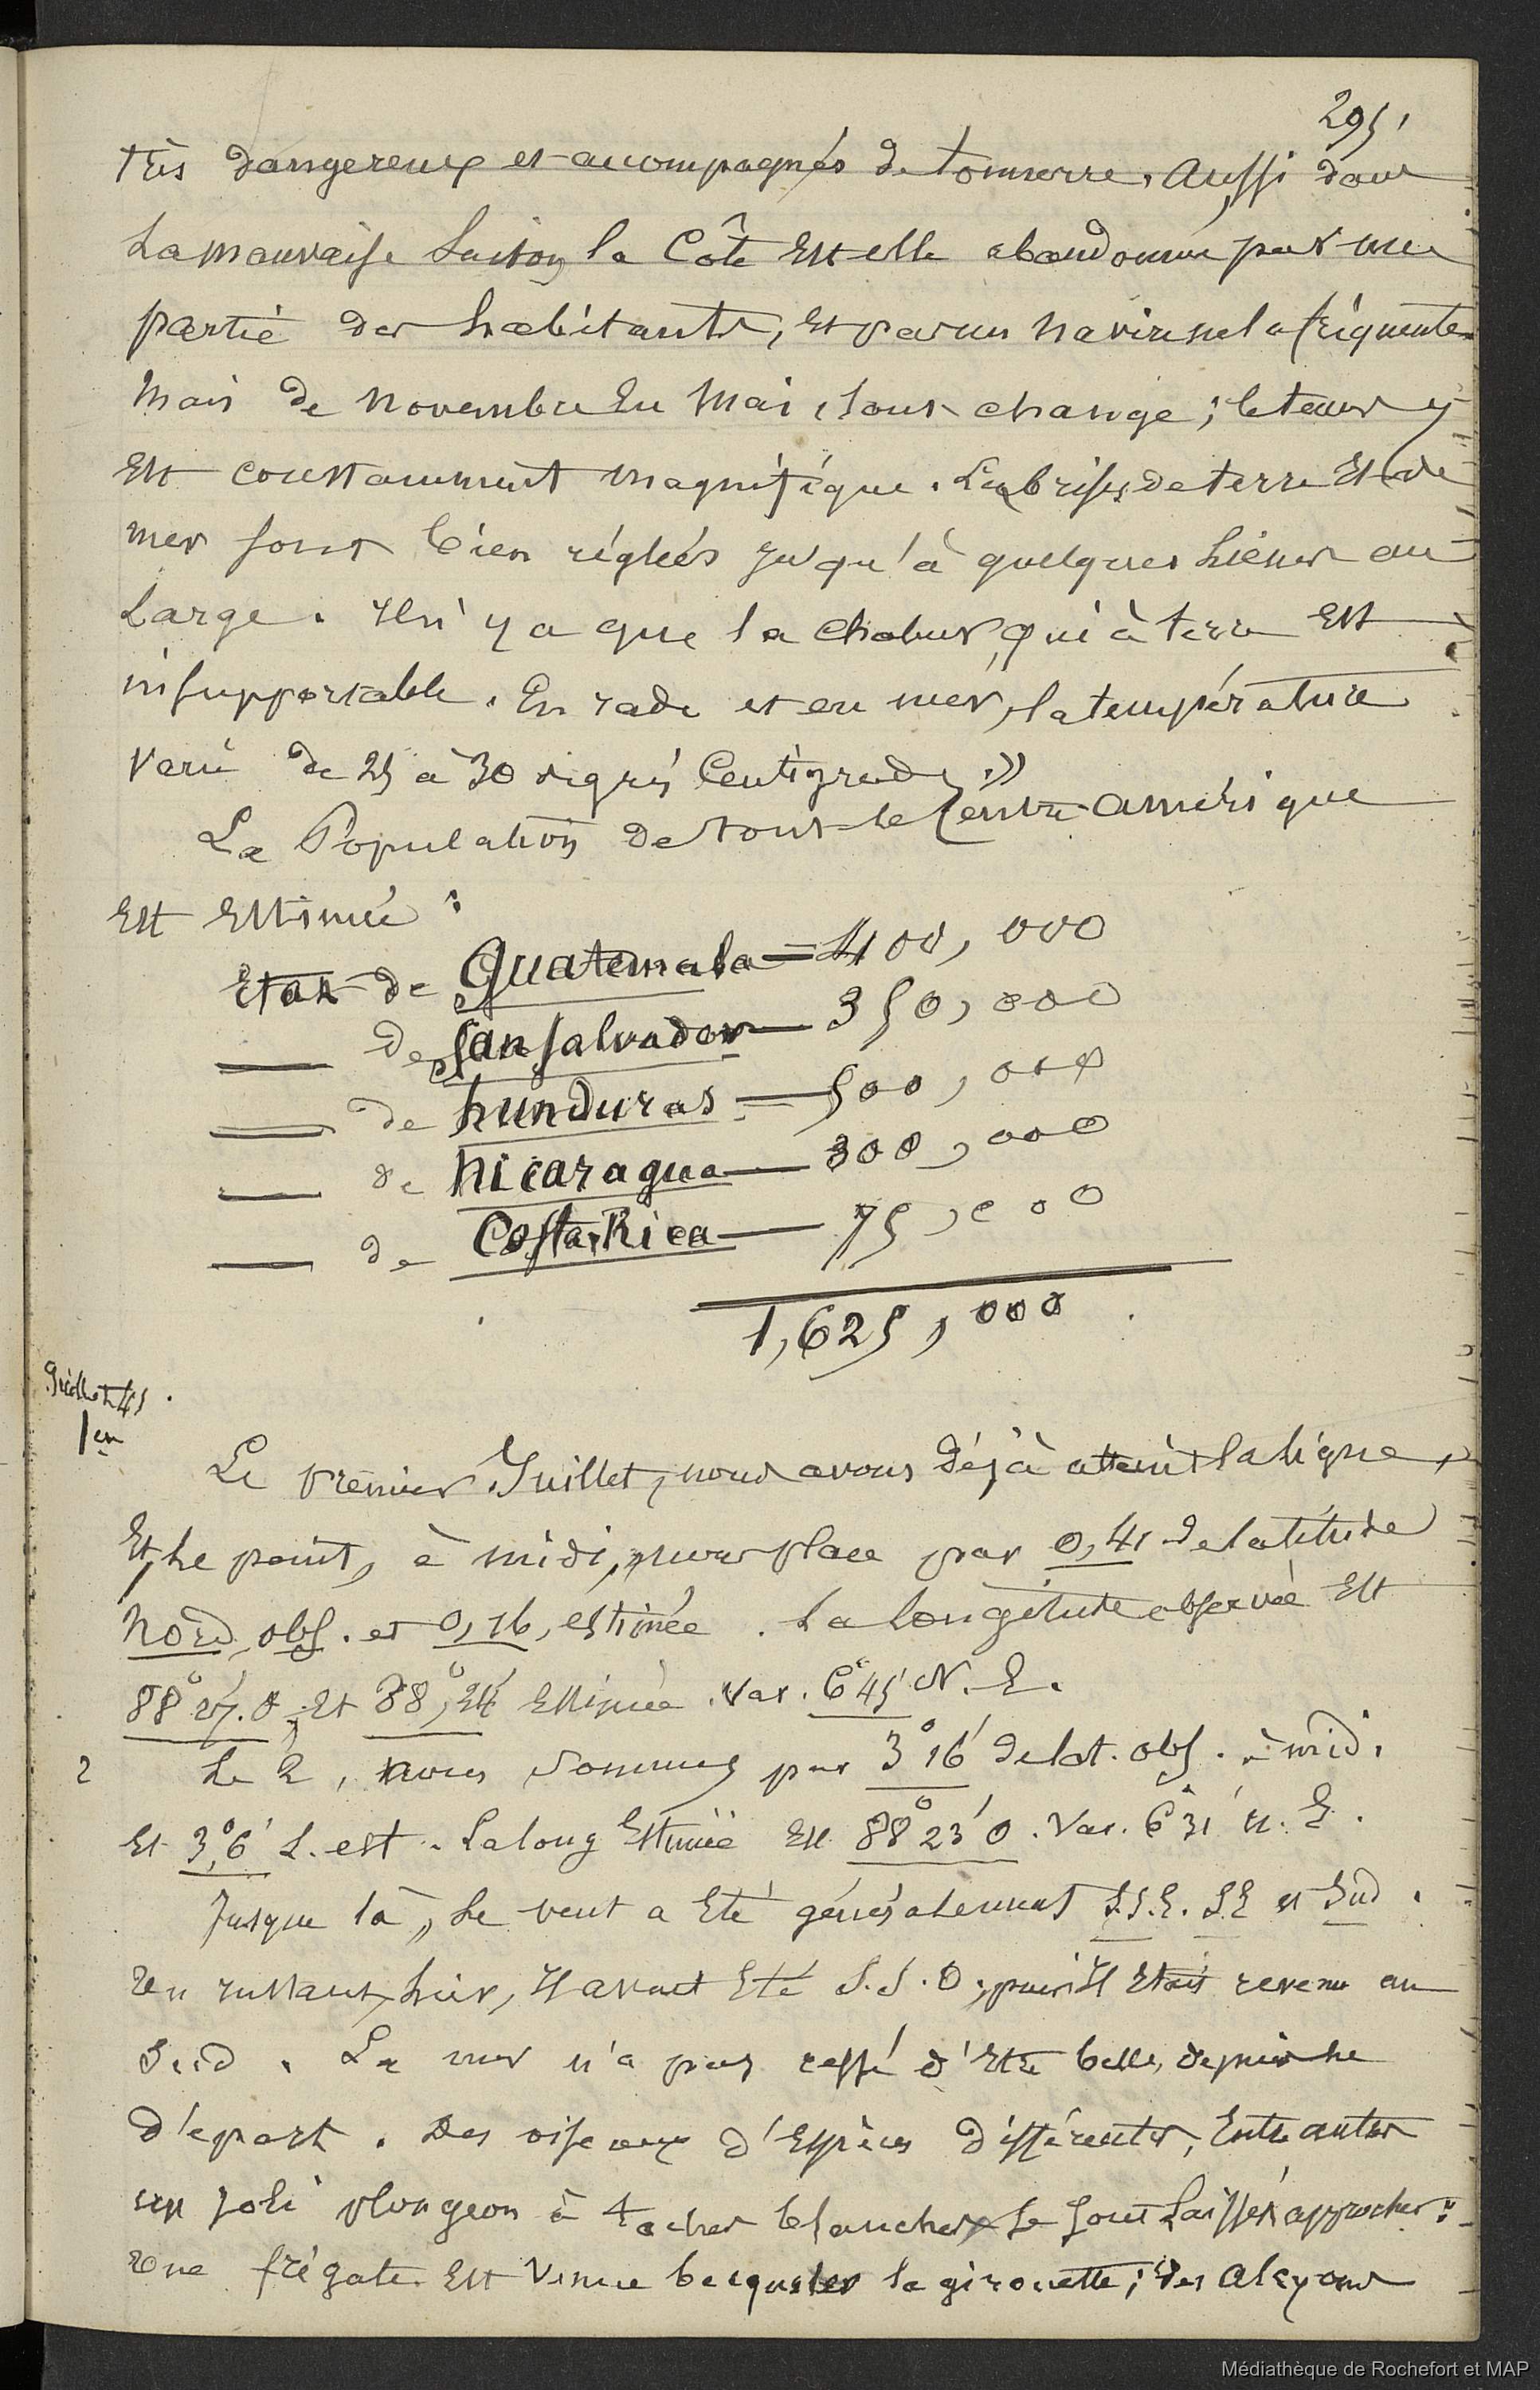 295
très dangereux et accompagnés de tonnerre. Aussi, dans
La mauvaise Saison la Côte Est elle abandonnée par une
partie des habitants, Et pas un navire ne la fréquente.
Mais de Novembre En Mai, tout change; le temps y
Est constamment magnifique. Les brises de terre Et de
mer sont bien réglées jusqu'à quelques Lieues au
Large. Il n'y a que la chaleur, qui à terre Est
insupportable. En rade et en mer, la température
varie de 25 à 30 degrés Centigrades. »
La Population de tout le Centre Amérique
Est Estimée :
Etat de Guatemala = 400,000
— de San Salvador — 350,000
— de hunduras — 500,000
— de Nicaragua — 300,000
— de Costa, Rica — 75,000
1,625,000
Juillet 45.
1er
Le premier Juillet, nous avons déjà atteint la ligne,
Et, Le point, à midi, nous place par 0,41 de latitude
Nord, obs. et 0,16, estimée. La longitude observée Est
88° 27'. O, Et 88°, 24' Estimée. Var. 6° 45' N. E.
2 Le 2, nous sommes par 3° 16' de lat. obs. à midi
Et 3°, 6' L. est. La long Estimée Est 88° 23' O. Var. 6° 31' N. E.
Jusque là, Le vent a Eté généralement S.S.E. S.E et Sud.
Un instant, hier, Il avait Eté S.S.O, puis Il Etait revenu au
Sud. La mer n'a pas cessé d'Etre belle, depuis le
départ. Des oiseaux d'Espèces différentes, Entre autres
un joli plongeon à taches blanches, se sont laissés approcher:
Une frégate Est venue becqueter la girouette; des alcyons